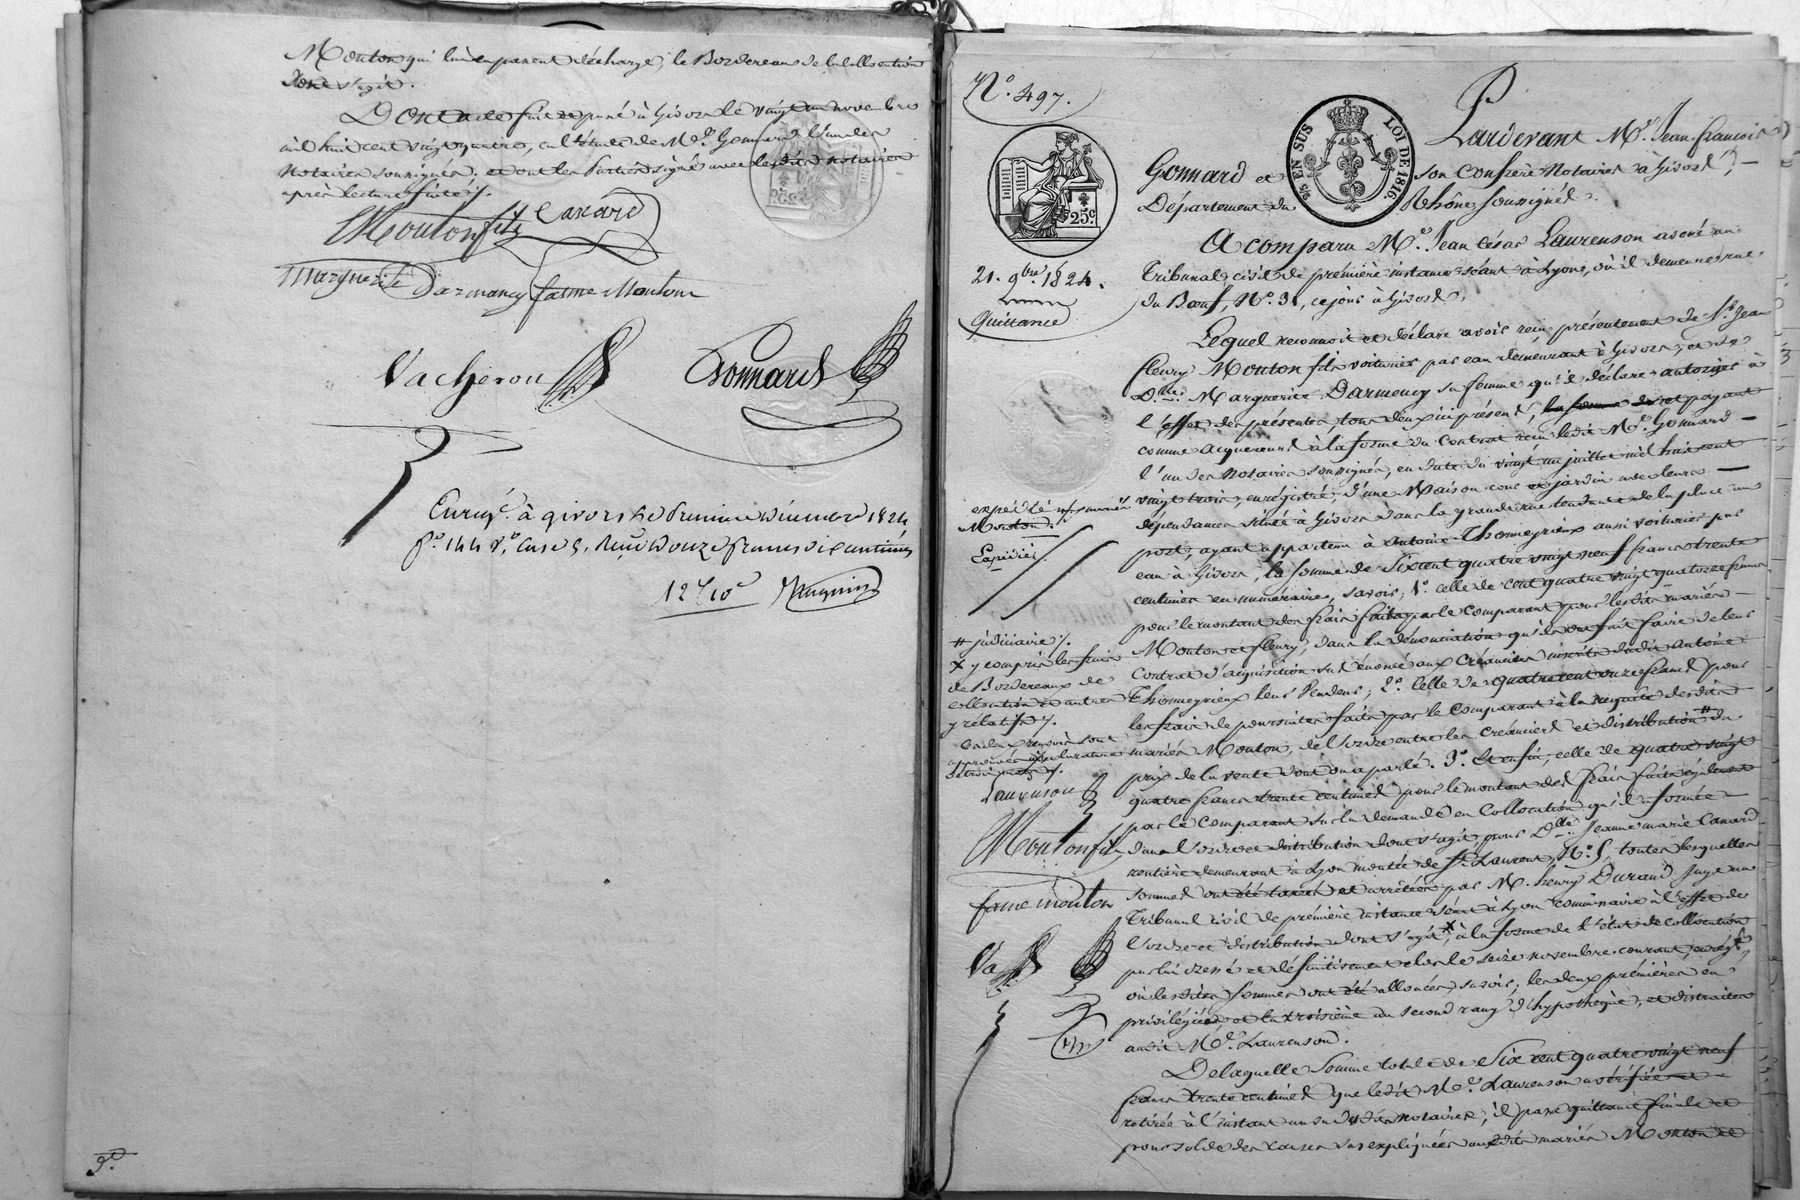 Mouton qui lui en passent décharge, le Bordereau de la collocation
dont s'agit.
Dont acte fait et passé à Givors le vingt un novembre
mil huit cent vingt quatre, en l'étude de Me Gonnard l'un des
notaires soussignés, et ont les parties signé avec lesdits notaires
après lecture faite ./.
Mouton fils Canard
Marguerite Darmancy fame Mouton
Vacheron Gonnard
Enregé à givors le premier décembre 1824
fo 144 Vo Case 5, reçu douze francs dix centimes
12f 10c
No. 497.
25c
2/5 EN SUS LOI DE 1816.
21. 9bre 1824.
Quittance
Pardevant Me Jean francois
Gonnard et son confrère Notaires à Givors,
Département du Rhône soussignés.
A comparu Me Jean César Laurenson avoué au
Tribunal civil de première instance séant à Lyon, où il demeure, rue
du Bœuf, No. 31, ce jour à Givors,
Lequel reconnoit et déclare avoir reçu présentement de Sr Jean
fleury Mouton fils voiturier par eau demeurant à Givors, et de
Dlle Marguerite Darmency sa femme qu'il déclare autoriser à
l'effet des présentes, tous deux ici présents, et payant
comme acquéreurs à la forme du contrat reçu ledit Me Gonnard
l'un des notaires soussignés, en date du vingt un juillet mil huit cent
vingt trois, enregistré, d'une Maison cour et jardin avec leurs
dépendances située à Givors dans la grande rue tendante de la place au
port, ayant appartenu à Antoine Thomeyrieux aussi voiturier par
eau à Givors, la somme de Six cent quatre vingt neuf francs trente
centimes en numéraire, savoir; 1o celle de cent quatre vingt quatorze francs
pour le montant des frais faits par le Comparant pour lesdits mariés
Mouton et fleury, dans la dénonciation qu'ils ont fait faire de leur
Contrat d'acquisition sus énoncé aux créanciers inscrits dudit Antoine
Thomeyrieux leur Vendeur; 2o Celle de quatre cent onze francs pour
les frais de poursuites faits par le Comparant à la requête desdits
mariés Mouton, de l'ordre entre les créanciers et distribution # du
prix de la vente dont on a parlé. 3o Et enfin, celle de quatre vingt
quatre francs trente centimes pour le montant des frais faits également
par le Comparant sur la demande en Collocation qu'il a formée
dans l'ordre et distribution dont s'agit, pour Dlle Jeanne marie Canard
rentière demeurant à Lyon montée de St Laurent, No. 5, toutes lesquelles
sommes ont été taxées et arrêtées par M. henry Durand Juge au
Tribunal civil de première instance séant à Lyon commissaire à l'effet de
l'ordre et distribution dont s'agit x, à la forme de l'état de collocation
par lui dressé et définitivement clos le seize novembre courant, enregé,
où lesdites sommes ont été allouées, savoir; les deux premières en
privilégiées et la troisième au second rang d'hypothèque, et distraites
audit Me Laurenson.
De laquelle Somme totale de Six cent quatre vingt neuf
francs trente centimes que ledit Me Laurenson a vérifiée et
retirée à l'instant au vu desdits notaires, il passe quittance finale et
pour solde des causes sus expliquées auxdits mariés Mouton et
expédié aux mariés
Mouton.
Expédié
# judiciaire ./.
x y compris les frais
de Bordereaux de
collocation et autres
y relatifs ./.
Laurenson
Mouton fils
fame mouton
Va